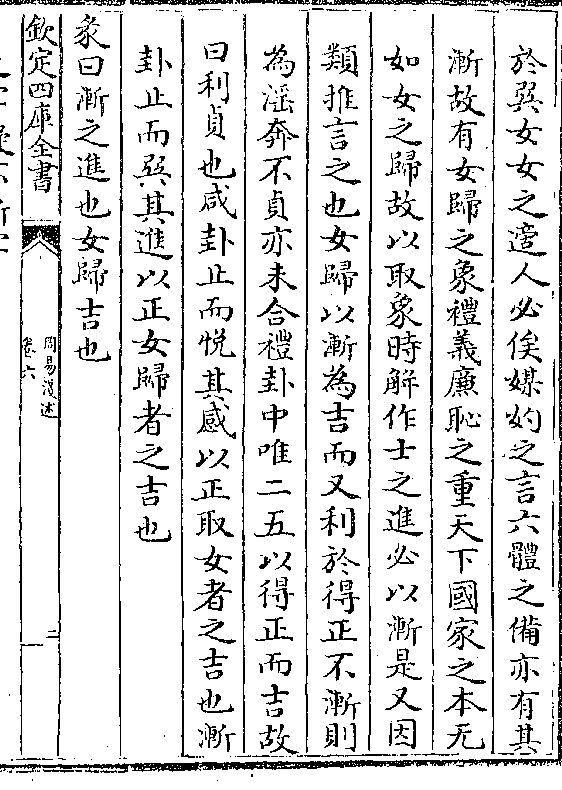 於巽女女之適人必俟媒妁之言六體之備亦有其
漸故有女歸之象禮義廉恥之重天下國家之本无
如女之歸故以取象時解作士之進必以漸是又因
類推言之也女歸以漸為吉而又利於得正不漸則
為滛奔不貞亦未合禮卦中唯二五以得正而吉故
曰利貞也咸卦止而悦其感以正取女者之吉也漸
卦止而巽其進以正女歸者之吉也
彖曰漸之進也女歸吉也
欽定四庫全書
周易淺述
卷六
二